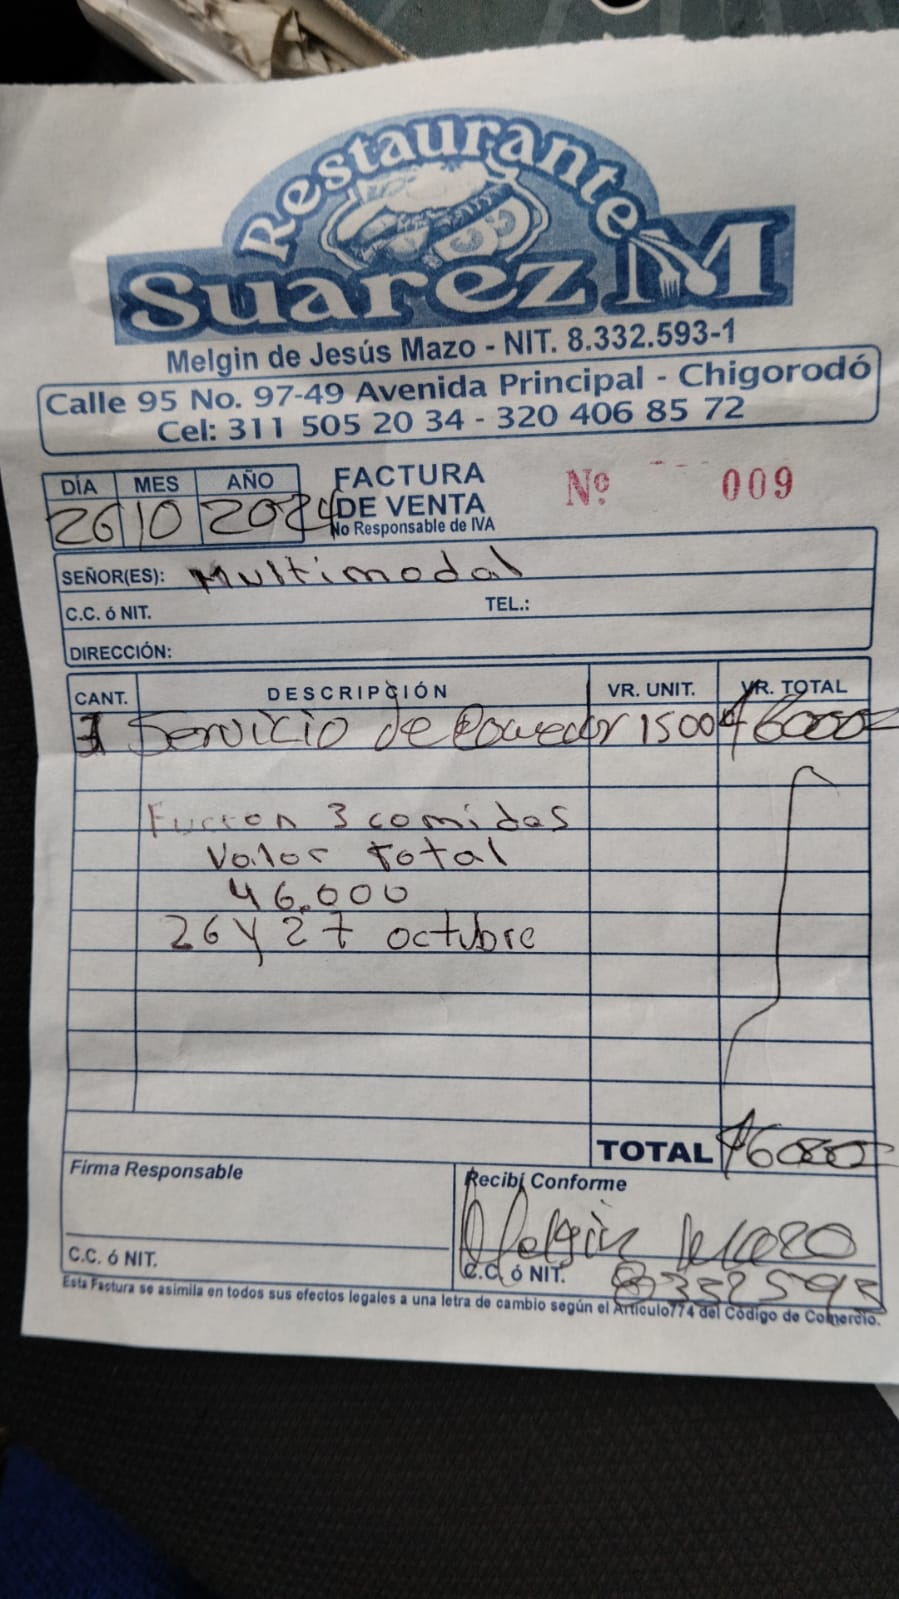 Restaurante
Suarez M
Melgin de Jesús Mazo - NIT. 8.332.593-1
Calle 95 No. 97-49 Avenida Principal - Chigorodó
Cel: 311 505 20 34 - 320 406 85 72
DÍA MES AÑO
26 10 2024
FACTURA
DE VENTA
No Responsable de IVA
Nº 009
SEÑOR(ES): Multimodal
C.C. ó NIT. TEL.:
DIRECCIÓN:
CANT. DESCRIPCIÓN VR. UNIT. VR. TOTAL
Servicio de Comedor
Fueron 3 comidas
Valor total
46.000
26 y 27 octubre
TOTAL
Firma Responsable
Recibí Conforme
Melgin
C.C. ó NIT.
C.C. ó NIT. 8332593
Esta Factura se asimila en todos sus efectos legales a una letra de cambio según el Artículo774 del Código de Comercio.